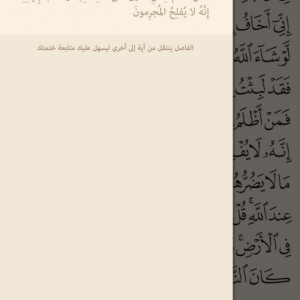 إِنَّهُ لَا يُفْلِحُ المُجرِمونَ
الفاصل ينتقل من آية إلى أخرى ليسهل عليك متابعة ختمتك
إِنِّىٓ أَخَافُ
لَّوْ شَآءَ ٱللَّهُ
فَقَدْ لَبِثْتُ
فَمَنْ أَظْلَمُ
إِنَّهُۥ لَا يُفْ
مَا لَا يَضُرُّهُ
عِندَ ٱللَّهِ ۚ قُلْ
فِى ٱلْأَرْضِ ۚ
كَانَ ٱلنَّ